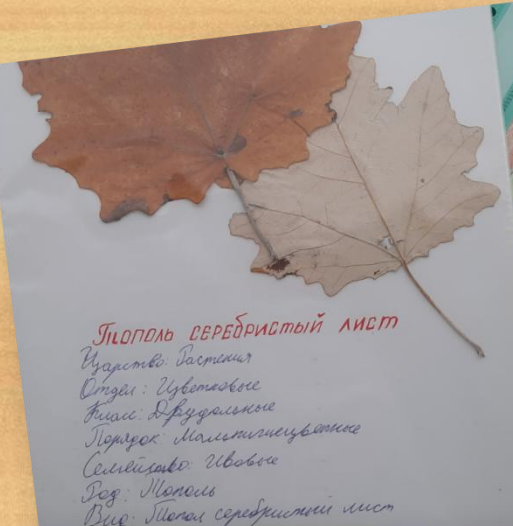 Тополь серебристый лист
Царство: Растения
Отдел: Цветковые
Клас: Двудольные
Порядок: Мальпигиецветные
Семейство: Ивовые
Род: Тополь
Вид: Топол серебристый лист